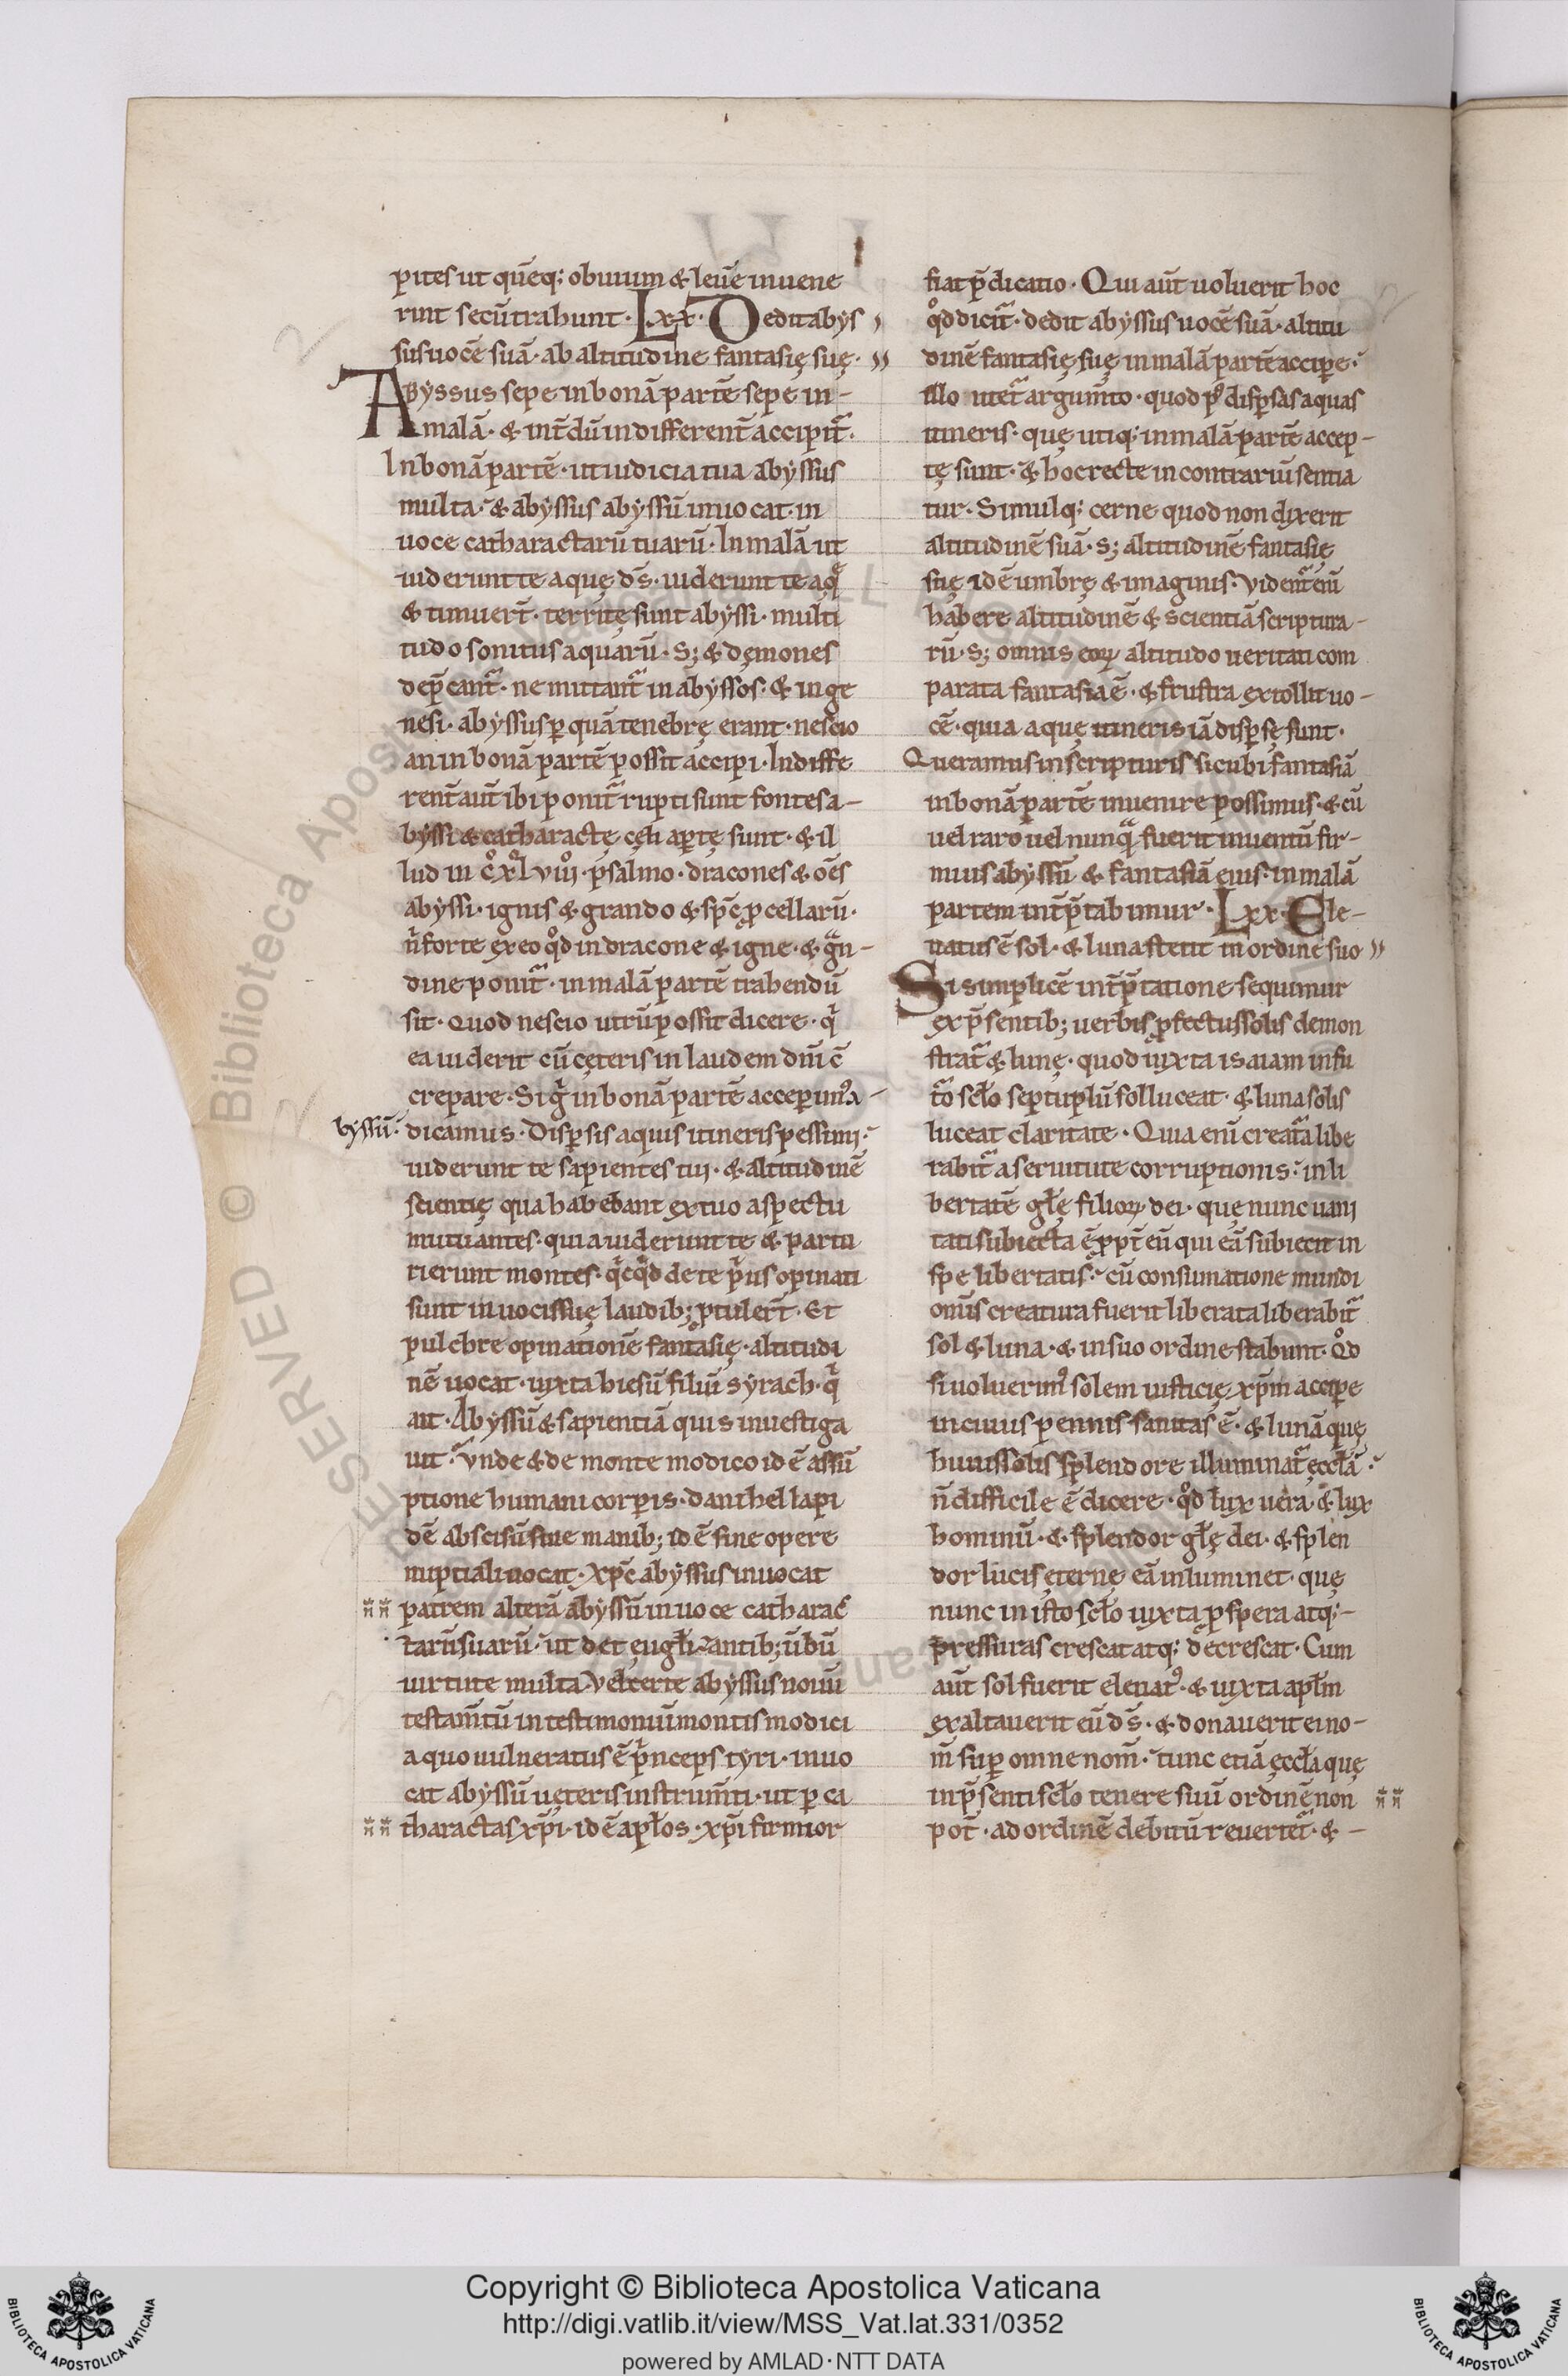 pites ut quēq; obuium & leuē inuene
rint secū trahunt · Lxx · Dedit abys
sus uocē suā · ab altitudine fantasię suę ·
Abyssus sepe in bonā partē sepe in-
malā · & int̄dū indifferent̄ accipit̄ ·
In bonā partē · ut iudicia tua abyssus
multa · & abyssus abyssū inuocat · in
uoce catharactarū tuarū · In malā ut
uiderunt te aquę d̄s · uiderunt te aq̄
& timuer̄t · territę sunt abyssi · multi
tudo sonitus aquarū · S; & dęmones
dep̄cant̄ · ne mittant̄ in abyssos · & in ge
nesi · abyssus ꝑ quā tenebrę erant · nescio
an in bonā partē possit accipi · Indiffe
rent̄ aut̄ ibi ponit̄ rupti sunt fontes a-
byssi & catharactę cęli aꝑtę sunt · & il
lud in c̊xl̊viiị̊ · psalmo · dracones & om̄s
abyssi · ignis & grando & sp̄c ꝓcellarū ·
n̄ forte ex eo qd̊ in dracone & igne · & g̃n-
dine ponit̄ · in malā partē trahendū
sit · Quod nescio utrū possit dicere · q̇
ea uiderit cū cęteris in laudem dn̄i c̄
crepare · Si g̊ in bonā partē acceperim᾽ a-
byssū · dicamus · Dispersis aquis itineris pessimi ·
uiderunt te sapientes tui · & altitudinē
scientię qua habebant ex tuo aspectu
mutuantes · quia uiderunt te & partu
rierunt montes · q̇cqd̊ de te ṗus opinati
sunt in uoci suę laudib; ꝓtuler̄t · Et
pulchre opinationē fantasię · altitudi
nē uocat · iuxta hiesū filiū syrach · q̇
ait · Abyssū & sapientiā quis inuestiga
uit · Vnde & de monte modico id ē assū
ptione humani corporis · danihel lapi
dē abscisū sine manib; id ē sine opere
nuptiali uocat · xp̄c abyssus inuocat
patrem alterā abyssū in uoce catharac̄
tarū suarū · ut det eug̅lizantib; ūbū
uirtute multa · Vel certe abyssus nouū
testam̄tū in testimoniū montis modici
a quo uulneratus ē ṗnceps tyri · inuo
cat abyssū ueteris instrum̄ti · ut ꝑ ca
tharactas xp̄i · id ē apłos · xp̄i firmior
fiat p̄dicatio · Qui aut̄ uoluerit hoc
qd̊ dicit̄ · dedit abyssus uocē suā · altitu
dinē fantasię suę in malā partē accipe ·
illo utet̄ argum̄to · quod p᾽ dispersas aquas
itineris · quę utiq; in malā partē accep-
tę sunt · & hoc recte in contrariū sentia
tur · Simulq; cerne quod non dixerit
altitudinē suā · s; altitudinē fantasię
suę id ē umbrę & imaginis · Vident̄ enī
habere altitudinē & scientiā scriptura-
rū · S; omnis eoꝝ altitudo ueritati com
parata fantasia ē · & frustra extollit uo-
cē · quia aquę itineris iā dispersę sunt ·
Queramus in scripturis sicubi fantasiā
in bonā partē inuenire possimus · & cū
uel raro uel nunq̄ fuerit inuentū fir-
mius abyssū & fantasiā eius in malā
partem int̄p̄tabimur · Lxx · Ele-
uatus ē sol · & luna stetit in ordine suo
Si simplicē int̄p̄tatione sequimur
ex p̄sentib; uerbis ꝓfectus solis demon
strat̄ & lunę · quod iuxta isaiam in fu
t̄o scło septuplū sol luceat · & luna solis
luceat claritate · Quia enī creat̄a libe
rabit̄ a seruitute corruptionis · in li
bertatē głę filioꝝ dei · quę nunc uani
tati subiecta ē ꝓpt̄ eū qui eā subiecit in
spe libertatis · cū consumatione mundi
om̄is creatura fuerit liberata liberabit̄
sol & luna · & in suo ordine stabunt · Qd̊
si uoluerim᾽ solem iusticię xp̄m accipe
in cuius pennis sanitas ē · & lunā quę
huius solis splendore illuminat̄ ęccłā ·
n̄ difficile ē dicere · qd̊ lux uera · & lux
hominū · & splendor głę dei · & splen
dor lucis ęternę eā inluminet · quę
nunc in isto scło iuxta prospera atq; -
pressuras crescat atq; decrescat · Cum
aut̄ sol fuerit eleuat᾽ · & iuxta apłm
exaltauerit eū d̄s · & donauerit ei no-
m̄ sup omne nom̄ · tunc etiā ęccła quę
in p̄senti scło tenere suū ordinē non
pot̄ · ad ordinē debitū reuertet̄ · & -
Copyright © Biblioteca Apostolica Vaticana
http://digi.vatlib.it/view/MSS_Vat.lat.331/0352
powered by AMLAD · NTT DATA
BIBLIOTECA APOSTOLICA VATICANA
BIBLIOTECA APOSTOLICA VATICANA